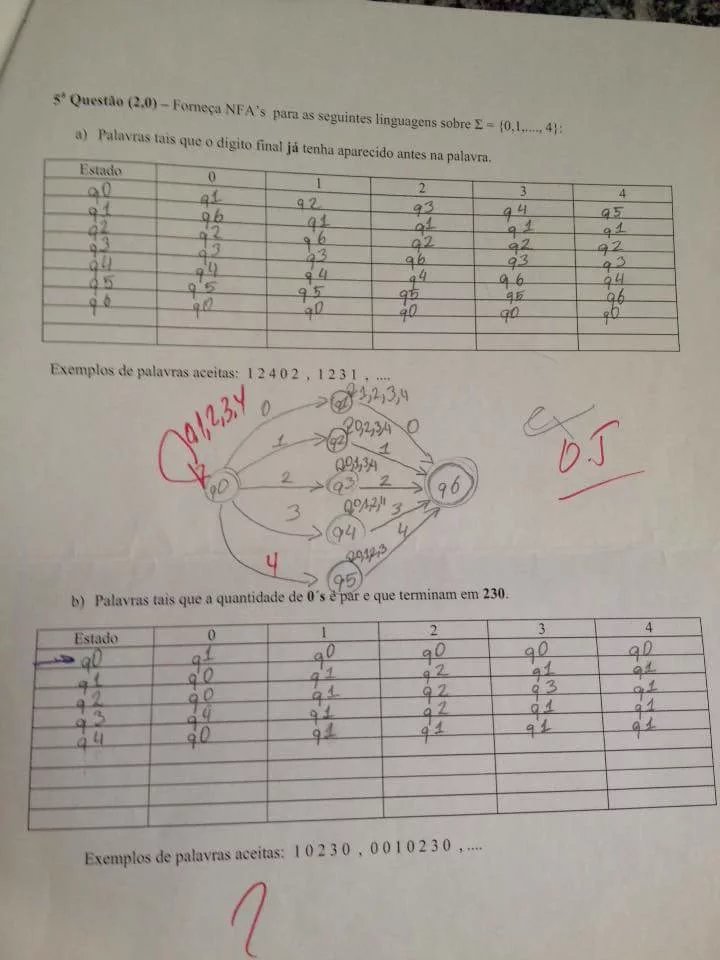 5ª Questão (2,0) – Forneça NFA's para as seguintes linguagens sobre Σ = {0,1,...., 4}:
a) Palavras tais que o dígito final já tenha aparecido antes na palavra.
Estado 0 1 2 3 4
q0 q1 q2 q3 q4 q5
q1 q6 q1 q1 q1 q1
q2 q2 q6 q2 q2 q2
q3 q3 q3 q6 q3 q3
q4 q4 q4 q4 q6 q4
q5 q5 q5 q5 q5 q6
q6 q0 q0 q0 q0 q0
Exemplos de palavras aceitas: 1 2 4 0 2 , 1 2 3 1 , ....
0,1,2,3,4
0 q1 1,2,3,4 0
1 q2 0,2,3,4 1
q0 2 q3 0,1,3,4 2 q6
3 q4 0,1,2,4 3
4 q5 0,1,2,3 4
0.5
b) Palavras tais que a quantidade de 0´s é par e que terminam em 230.
Estado 0 1 2 3 4
q0 q1 q0 q0 q0 q0
q1 q0 q1 q2 q1 q1
q2 q0 q1 q2 q3 q1
q3 q4 q1 q2 q1 q1
q4 q0 q1 q1 q1 q1
Exemplos de palavras aceitas: 1 0 2 3 0 , 0 0 1 0 2 3 0 , ....